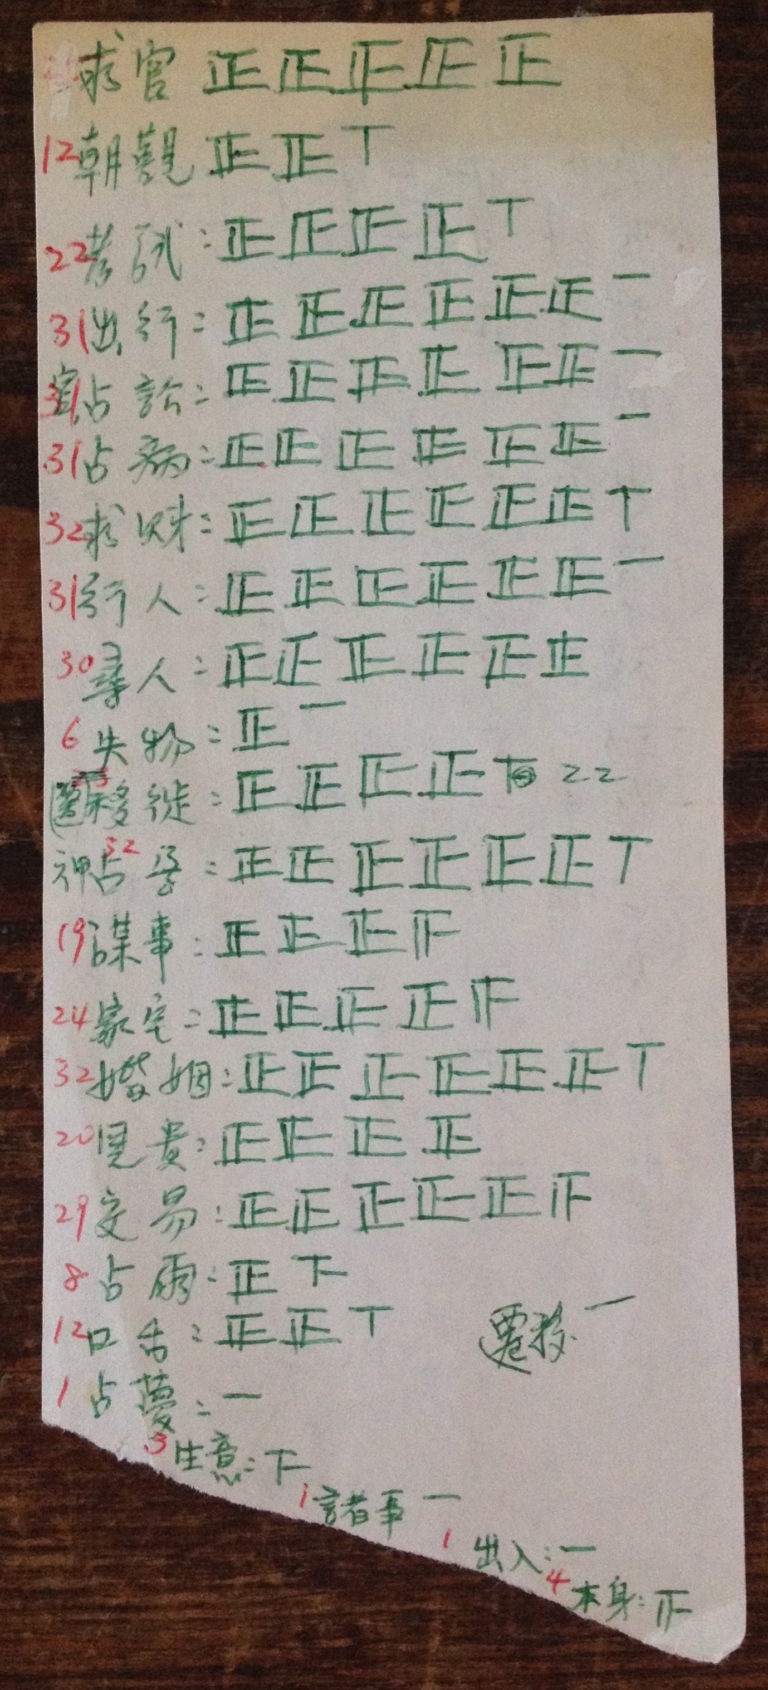 求官 正正正正正
12朝觀 正正丅
22考試:正正正正丅
31出行:正正正正正正一
占訟:正正正正正正一
31占病:正正正正正正一
32求財:正正正正正正丅
31行人:正正正正正正一
30尋人:正正正正正正
6失物:正一
移徙:正正正正 22
32占孕:正正正正正正丅
19謀事:正正正
24家宅:正正正正
32婚姻:正正正正正正丅
20見貴:正正正正
29交易:正正正正正
8占雨:正下
12口舌:正正丅
遷移 一
1占夢:一
3生意:下
1諸事 一
1出入:一
4本身: